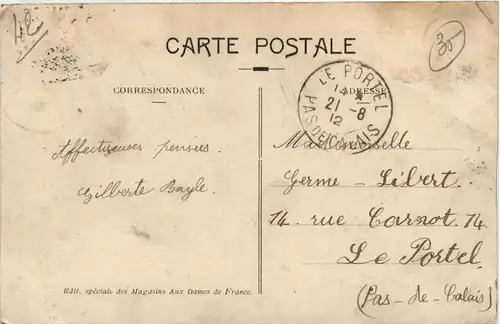 42
35
CARTE POSTALE
CORRESPONDANCE
ADRESSE
LE PORTEL
14 *
21 - 8
12
PAS DE CALAIS
Affectueuses pensées.
Gilberte Bayle.
Mademoiselle
Germe - Libert.
14. rue Carnot. 14.
Le Portel.
(Pas - de - Calais)
Edit. spéciale des Magasins Aux Dames de France.